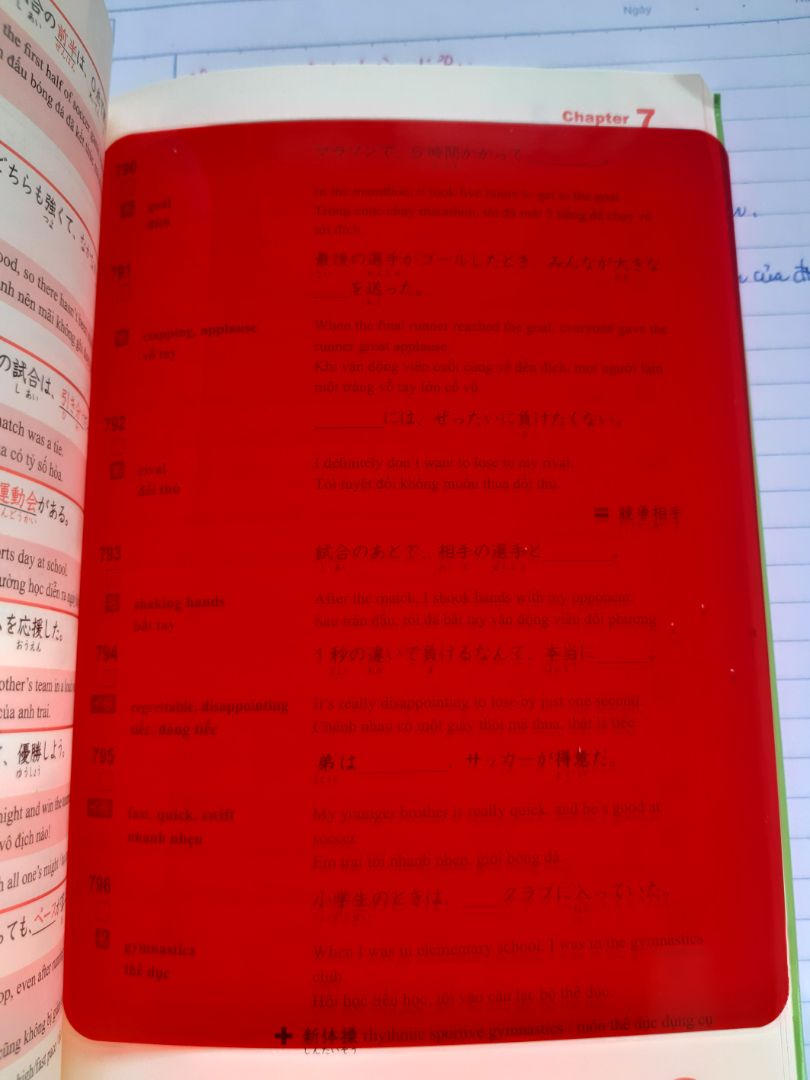 Ngày
合の前半は、
しあい ぜんはん
the first half of soccer
đấu bóng đá đã kết
どちらも強くて、なかなか
つよ
ood, so there hasn't been
nh nên mãi không
の試合は、引き分け
しあい
match was a tie.
a có tỷ số hòa.
運動会がある。
んどうかい
orts day at school.
ường học diễn ra
を応援した。
おうえん
other's team in a loud
của anh trai.
、優勝しよう。
ゆうしょう
might and win the
vô địch nào!
h all one's might
っても、ペースが
op, even after running
cũng không bị
của
Chapter 7
790
マラソンで、5時間かかって______。
In the marathon, it took five hours to get to the goal.
Trong cuộc chạy marathon, tôi đã mất 5 tiếng để chạy về
tới đích.
名
goal
đích
791
最後の選手がゴールしたとき、みんなが大きな
____を送った。
名
clapping, applause
vỗ tay
When the final runner reached the goal, everyone gave the
runner great applause.
Khi vận động viên cuối cùng về đến đích, mọi người tặng
một tràng vỗ tay lớn cổ vũ.
792
________には、ぜったいに負けたくない。
名
rival
đối thủ
I definitely don't want to lose to my rival.
Tôi tuyệt đối không muốn thua đối thủ.
＝ 競争相手
793
試合のあとで、相手の選手と________。
名
shaking hands
bắt tay
After the match, I shook hands with my opponent.
Sau trận đấu, tôi đã bắt tay vận động viên đối phương.
794
1秒の違いで負けるなんて、本当に______。
regrettable, disappointing
tiếc, đáng tiếc
It's really disappointing to lose by just one second.
Chênh nhau có một giây thôi mà thua, thật là tiếc.
795
弟は__________、サッカーが得意だ。
fast, quick, swift
nhanh nhẹn
My younger brother is really quick, and he's good at
soccer.
Em trai tôi nhanh nhẹn, giỏi bóng đá.
796
小学生のときは、____クラブに入っていた。
名
gymnastics
thể dục
When I was in elementary school, I was in the gymnastics
club.
Hồi học tiểu học, tôi vào câu lạc bộ thể dục.
＋ 新体操 rhythmic sportive gymnastics / môn thể dục dụng cụ
しんたいそう